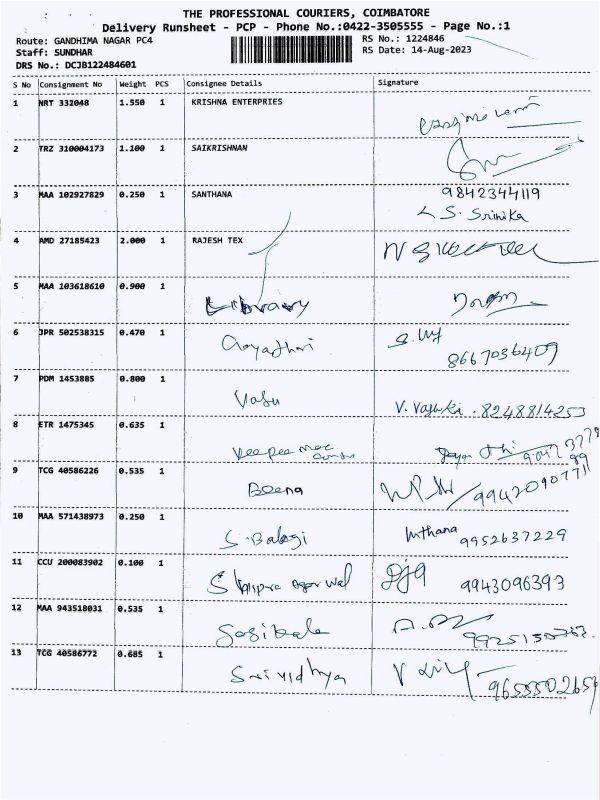 THE PROFESSIONAL COURIERS, COIMBATORE
Delivery Runsheet - PCP - Phone No.:0422-3505555 - Page No.:1
Route: GANDHIMA NAGAR PC4
Staff: SUNDHAR
DRS No.: DCJB122484601
RS No.: 1224846
RS Date: 14-Aug-2023
S No Consignment No Weight PCS Consignee Details Signature
1 NRT 332048 1.550 1 KRISHNA ENTERPRIES
2 TRZ 310004173 1.100 1 SAIKRISHNAN
3 MAA 102927829 0.250 1 SANTHANA 9842344119
S. Srinika
4 AMD 27185423 2.000 1 RAJESH TEX
5 MAA 103618610 0.900 1 Library
6 JPR 502538315 0.470 1 Gayathari
8667036409
7 PDM 1453885 0.800 1 Vasu V. Vasuki. 8248814253
8 ETR 1475345 0.635 1 Veepee
9 TCG 40586226 0.535 1 Beena 9942090771
10 MAA 571438973 0.250 1 S. Balagi Inthana 9952637229
11 CCU 200083902 0.100 1 Shilpra Agarwal 9943096393
12 MAA 943518031 0.535 1 Sasikala
13 TCG 40586772 0.685 1 Srividhya